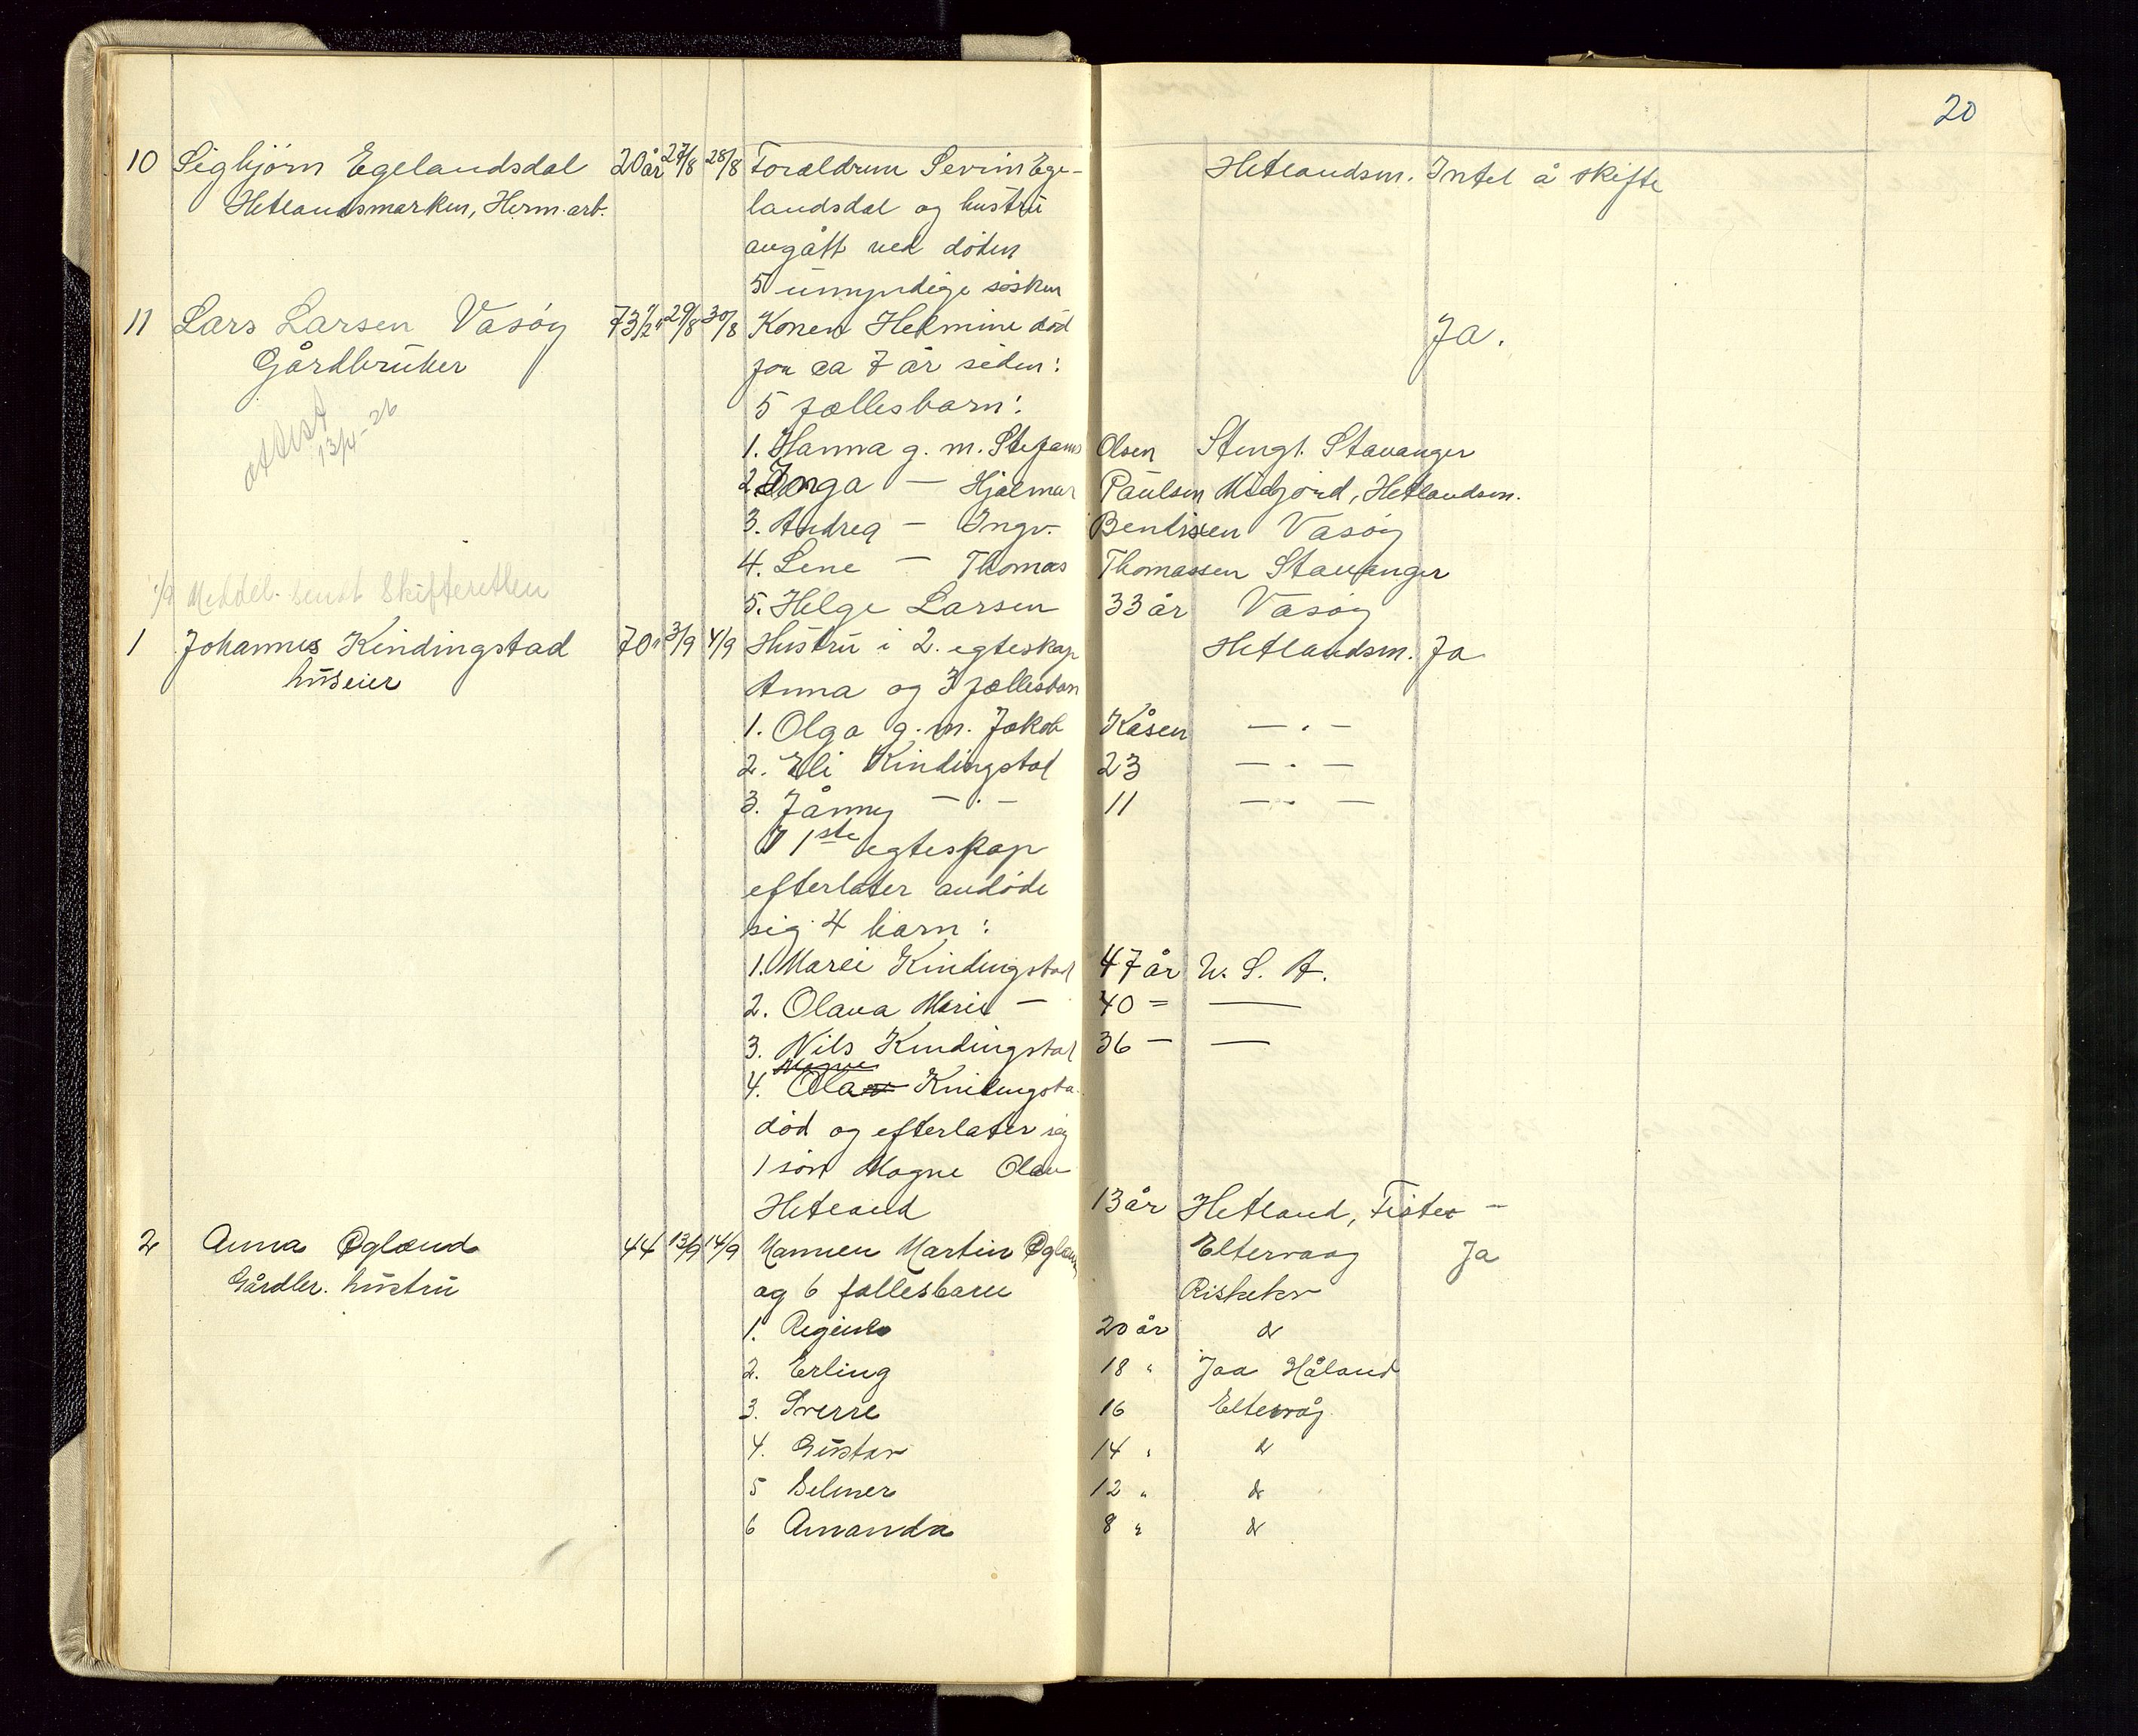 20
10 Sigbjörn Egelandsdal 20 år 27/8 28/8 Forældrene Sevrin Ege- Hetlandsm. Intet å skifte
Hetlandsmarken, Herm.arb. landsdal og hustru
avgått ved döden
5 umyndige sösken
11 Lars Larsen Vasöy 73 1/2 " 29/8 30/8 Konen Helmine död Ja.
Gårdbruker for ca 7 år siden:
5 fællesbarn:
attest 13/4-26
1. Hanna g. m. Stefanus Olsen Stengt. Stavanger
2. Torga — Hjalmar Paulsen Midjord, Hetlandsm.
3. Andrea — Ingv. Bentsen Vasöy
4. Lene — Thomas Thomassen Stavanger
1/9 Meddel. sendt Skifteretten
5. Helge Larsen 33 år Vasöy
1 Johannes Kindingstad 70 " 3/9 4/9 Hustru i 2. egteskap Hetlandsm. Ja
huseier Anna og 3 fællesbarn
1. Olga g. m. Jakob Kåsen — . —
2. Eli Kindingstad 23 — . —
3. Jånny — . — 11 — . —
I 1ste egteskap
efterlater avdöde
sig 4 barn:
1. Marei Kindingstad 47 år U. S. A.
2. Olava Marie — 40 = —
3. Nils Kindingstad 36 — —
Magne
4. Olav Kindingsta
död og efterlater sig
1 sön Magne Olav
Hetland 13 år Hetland, Fister —
2 Anna Øgland 44 13/9 14/9 Mannen Martin Øgland Eltervaag Ja
Gårdbr. hustru og 6 fællesbarn Riskekv
1. Regine 20 år do
2. Erling 18 " Jaa Håland
3. Sverre 16 Eltervåg
4. Gustav 14 " do
5 Selmer 12 " do
6 Amanda 8 " do